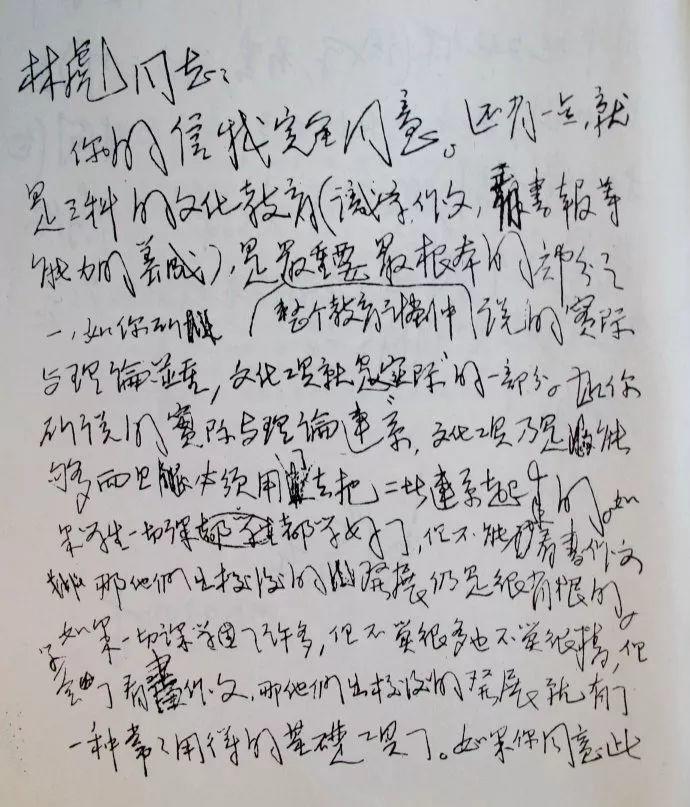 林彪同志：
你的信我完全同意。还有一点，就
是三科的文化教育(識字，作文，看書報等
能力的養成)，是最重要最根本的部分之
一，如你所
整个教育計劃中
說的實际
与理論並重，文化工具就是“實际”的一部分。如你
所说的實际与理論連系，文化工具乃是能
够而且本须用去把二者連系起来的。如
果学生一切課都学好了，但不能看書作文
那他們出校後的發展仍是很有限的。
如果一切課学了许多，但不算很多也不算很精，但
学会了看書作文，那他們出校後的發展就有了
一种常常用得的基礎工具了。如果你同意此